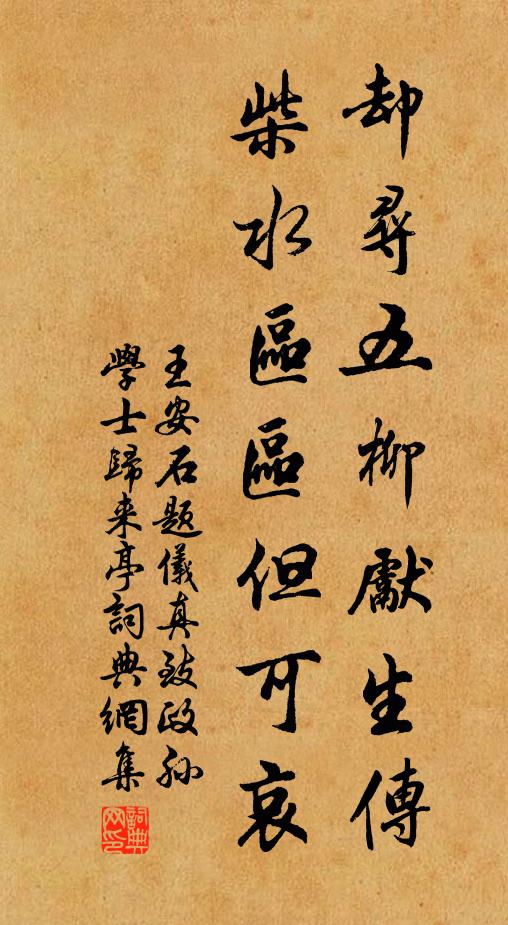 却尋五柳獻生傳
柴水區區但可哀
王安石題儀真致政孙
學士歸来亭詞典網集
詞典网印